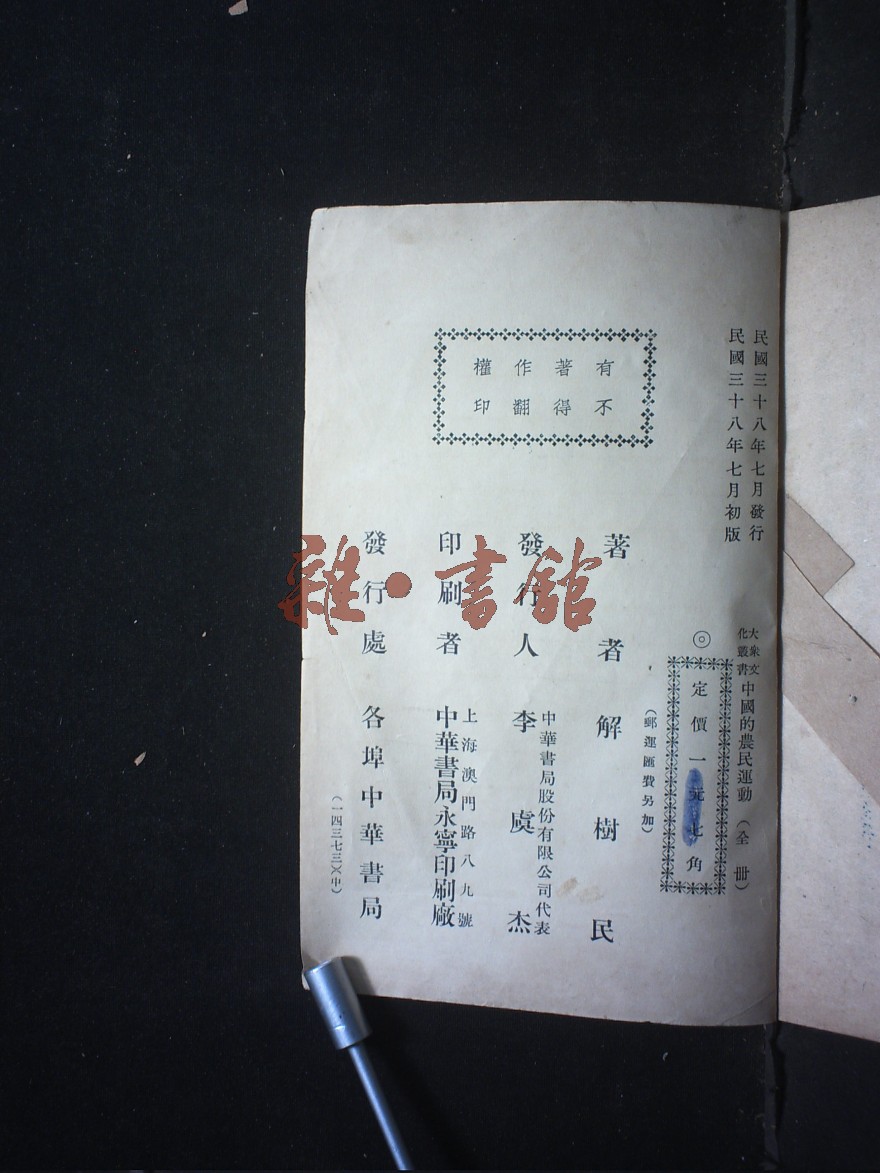 民國三十八年七月發行
民國三十八年七月初版
大衆文化叢書 中國的農民運動（全冊）
◎定價一元七角
（郵運匯費另加）
有著作權
不得翻印
著者 解樹民
發行人 中華書局股份有限公司代表 李虞杰
印刷者 上海澳門路八九號 中華書局永寧印刷廠
發行處 各埠中華書局
（一四三七三）（中）
雜·書館